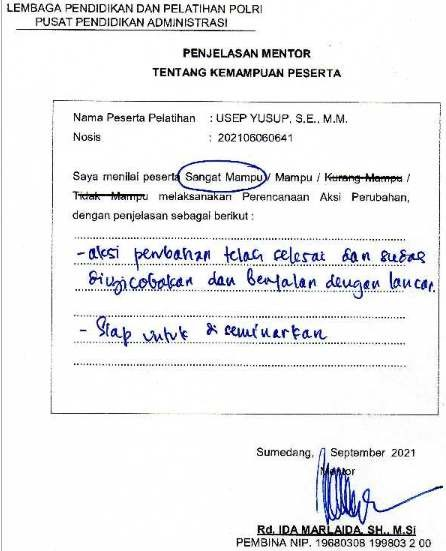 LEMBAGA PENDIDIKAN DAN PELATIHAN POLRI
PUSAT PENDIDIKAN ADMINISTRASI
PENJELASAN MENTOR
TENTANG KEMAMPUAN PESERTA
Nama Peserta Pelatihan : USEP YUSUP, S.E., M.M.
Nosis : 202106060641
Saya menilai peserta Sangat Mampu / Mampu / Kurang Mampu /
Tidak Mampu melaksanakan Perencanaan Aksi Perubahan,
dengan penjelasan sebagai berikut :
- aksi perubahan telah selesai dan sudah
diujicobakan dan berjalan dengan lancar.
- Siap untuk diseminarkan
Sumedang, September 2021
Mentor
Rd. IDA MARLAIDA, SH., M.Si
PEMBINA NIP. 19680308 199803 2 00